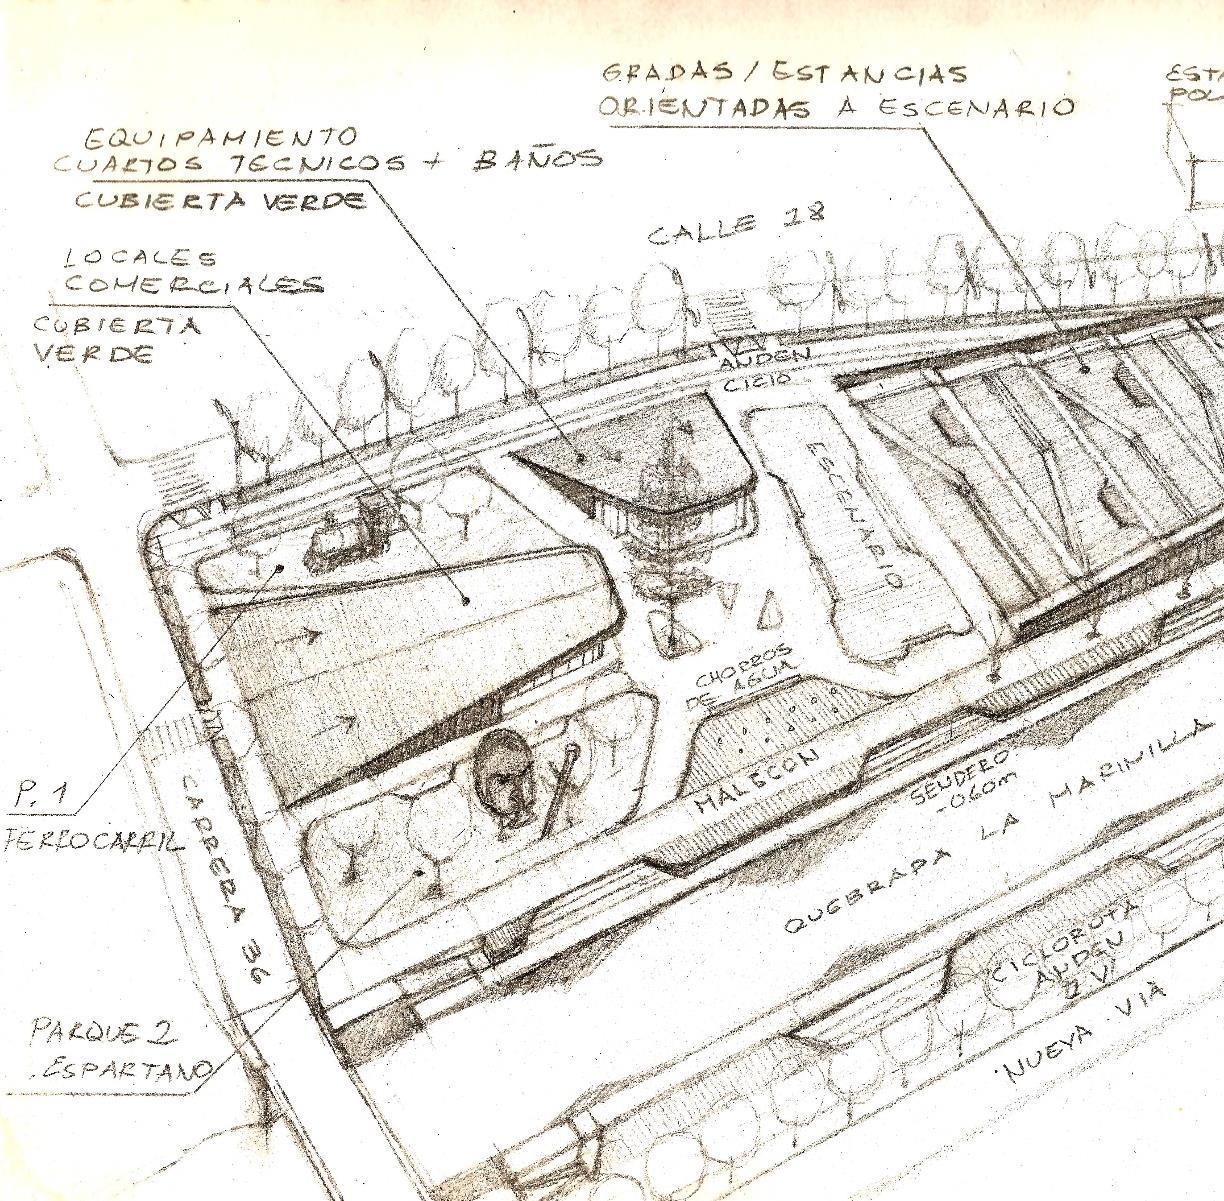 GRADAS / ESTANCIAS
ORIENTADAS A ESCENARIO
EQUIPAMIENTO
CUARTOS TECNICOS + BAÑOS
CUBIERTA VERDE
LOCALES
COMERCIALES
CUBIERTA
VERDE
CALLE 18
ANDEN
ESCENARIO
CHORROS
DE AGUA
MALECON
SENDERO
-060m
QUEBRADA LA MARINILLA
P. 1
FERROCARRIL
CARRERA 36
CICLORUTA
ANDEN
2 V
NUEVA VIA
PARQUE 2
ESPARTANO